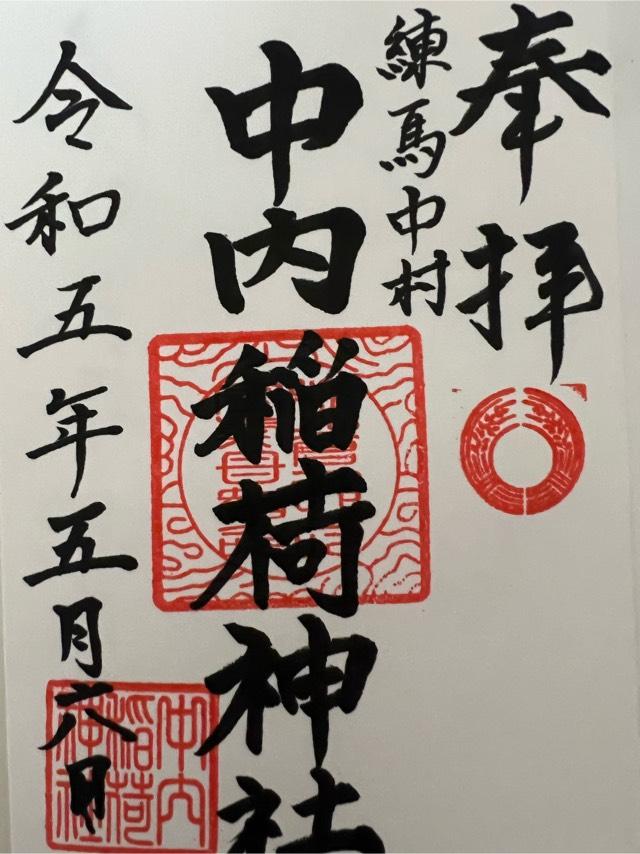 奉拝
練馬中村
中内稲荷神社
令和五年五月六日
中内
稲荷
神社